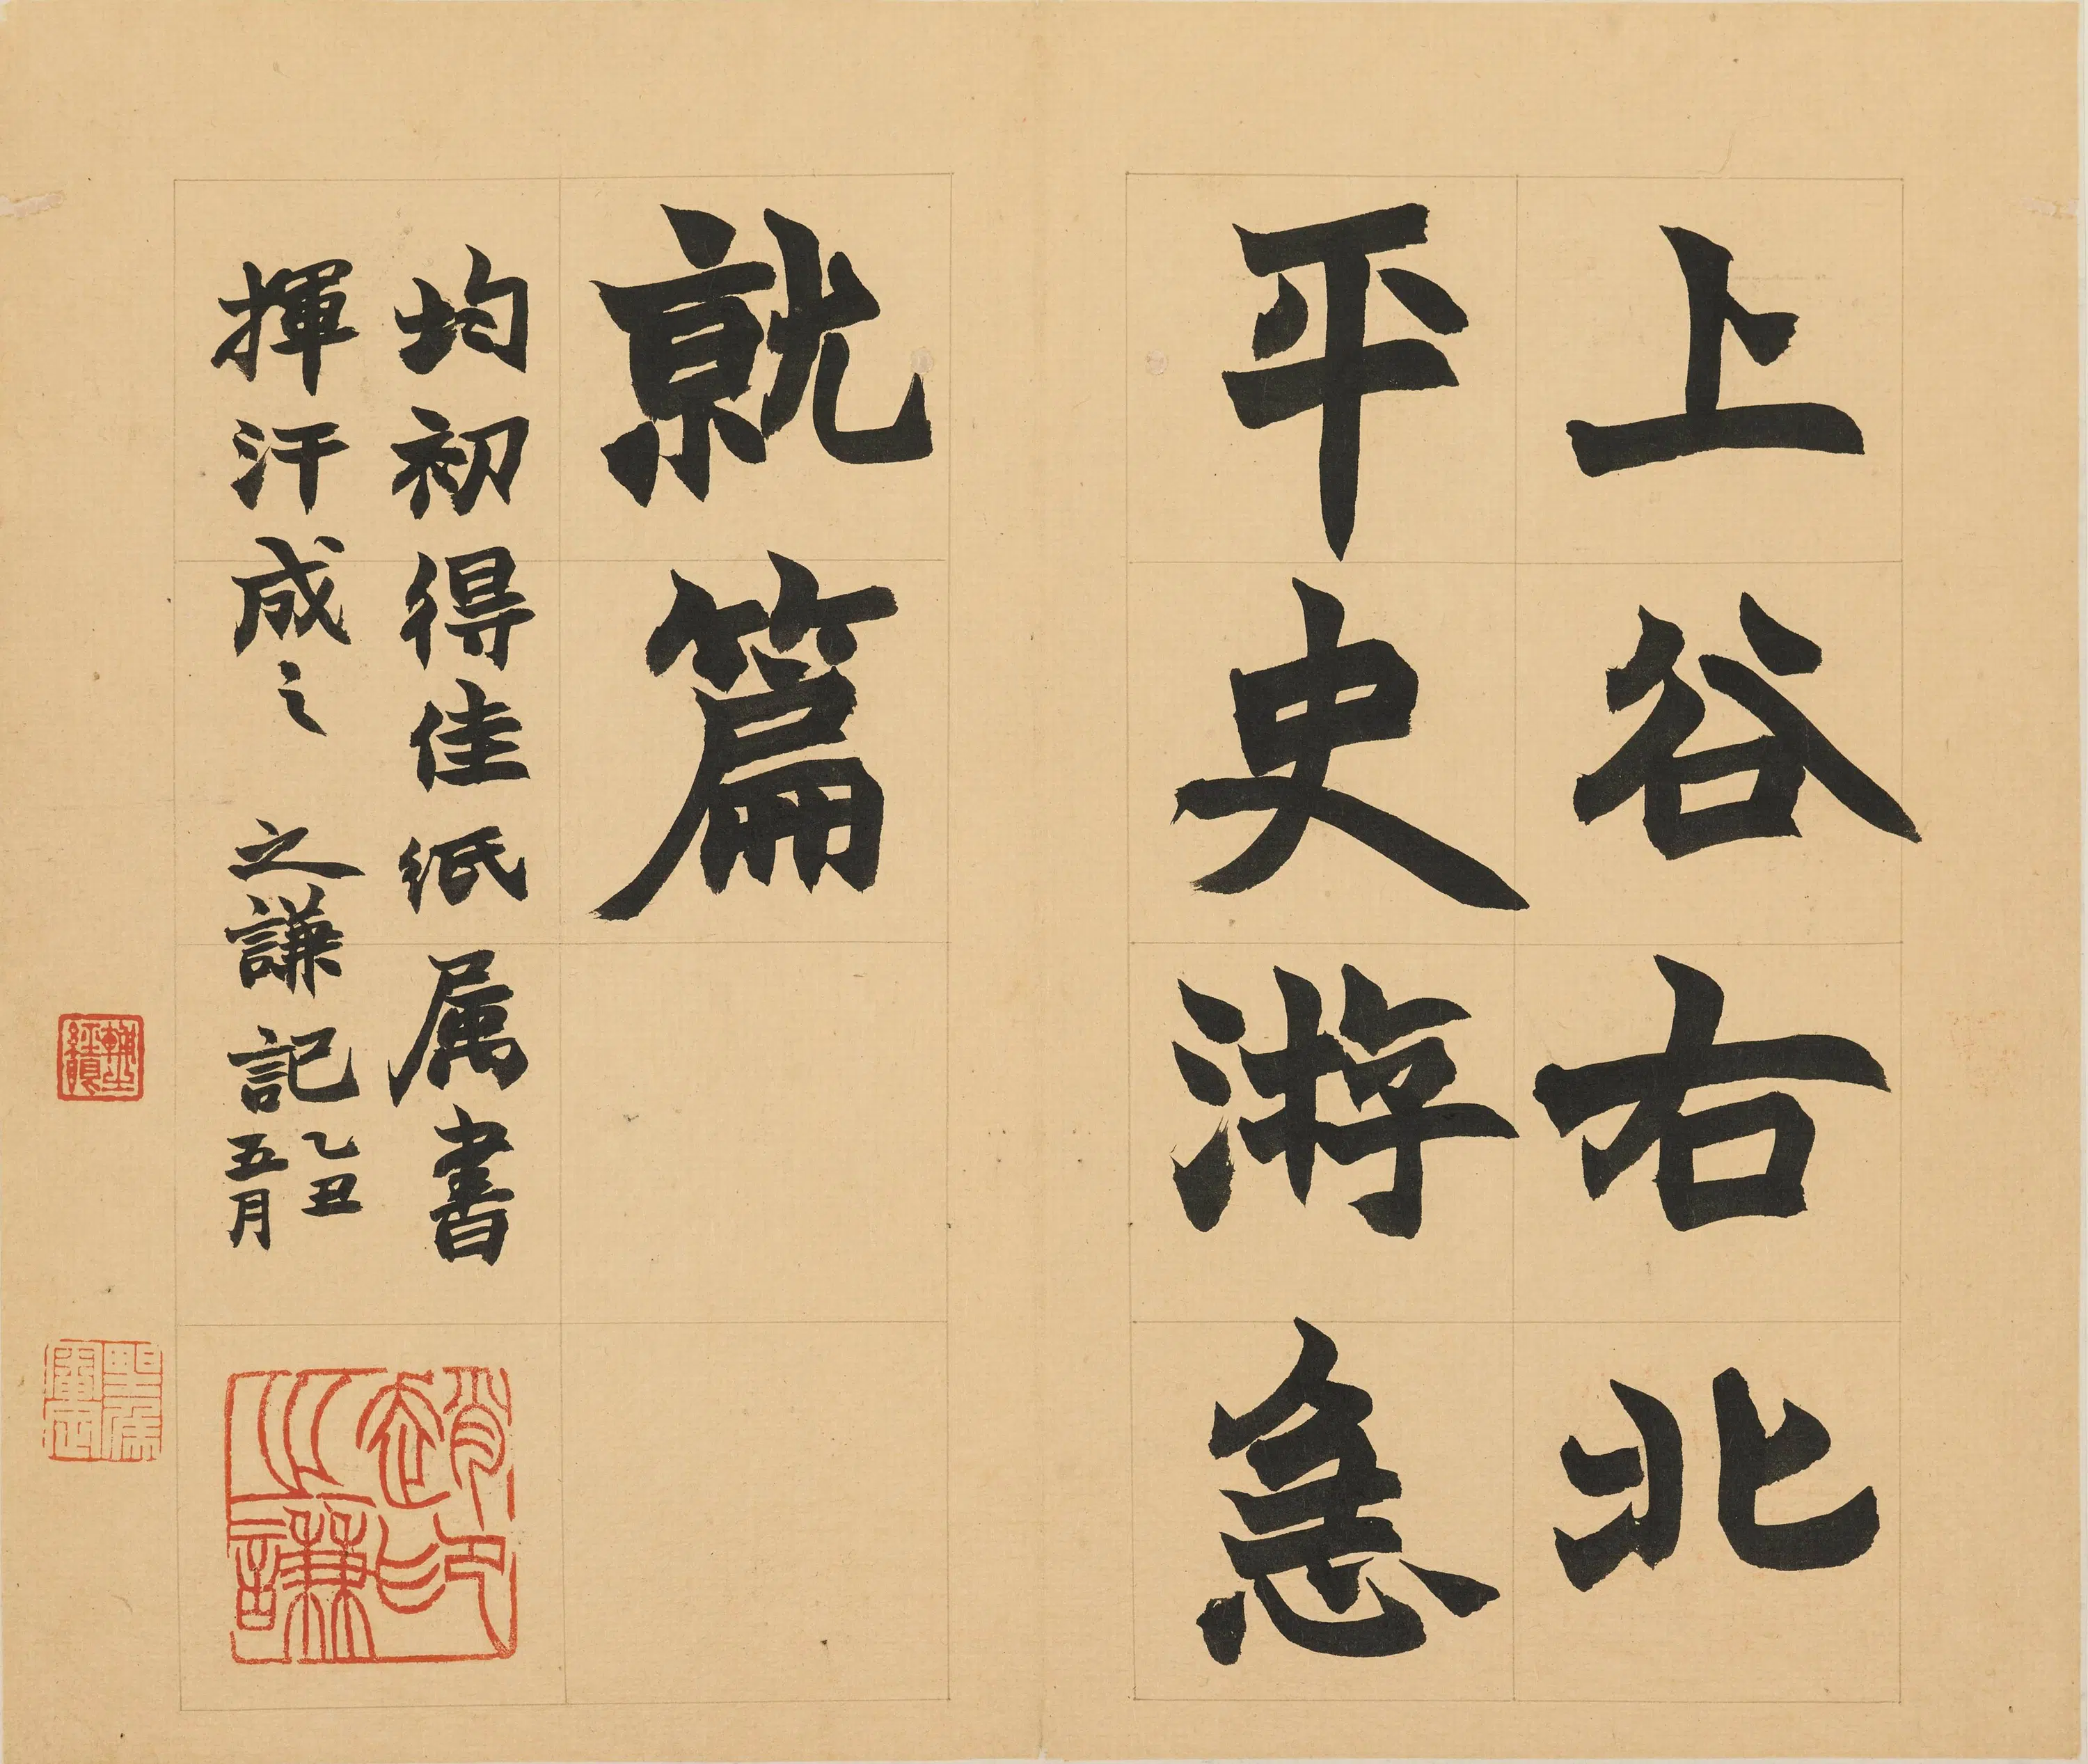 上谷右北
平史游急
就篇
均初得佳紙属書
揮汗成之 之謙記
乙丑
五月
趙之謙印